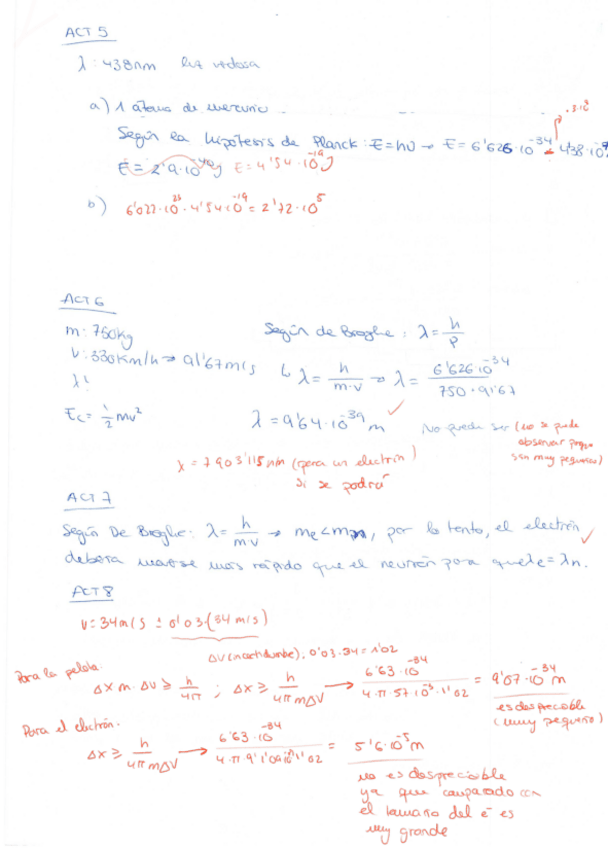 ACT 5
λ: 438nm luz violosa
a) 1 átomo de mercurio
Según la hipótesis de Planck: E=hν → E= 6'626·10^-34 · 438·10^9
·3·10^8
E= 2'9·10^-40 J E= 4'54·10^-19 J
b) 6'022·10^23 · 4'54·10^-19 = 2'72·10^5
ACT 6
m: 750kg
Según de Broglie: λ = h/p
v: 330km/h → 91'67m/s
↳ λ = h/m·v → λ = 6'626·10^-34 / 750·91'67
λ:
Ec = 1/2 mv²
λ = 9'64·10^-39 m ✓
No puede ser (no se puede observar porque son muy pequeños)
λ = 7903'115nm (para un electrón)
si se podrá
ACT 7
Según De Broglie: λ = h/mv → me<mn, por lo tanto, el electrón
deberá moverse más rápido que el neutrón para que λe=λn. ✓
ACT 8
v = 34m/s ± 0'03·(34 m/s)
ΔV (incertidumbre). 0'03·34 = 1'02
Para la pelota.
Δx m·ΔV ≥ h/4π ; Δx ≥ h/4πmΔV → 6'63·10^-34 / 4·π·57·10^-3·1'02 = 9'07·10^-34 m
es despreciable
(muy pequeño)
Para el electrón.
Δx ≥ h/4πmΔV → 6'63·10^-34 / 4·π·9'1·10^-31·1'02 = 5'6·10^-5 m
no es despreciable
ya que comparado con
el tamaño del e⁻ es
muy grande